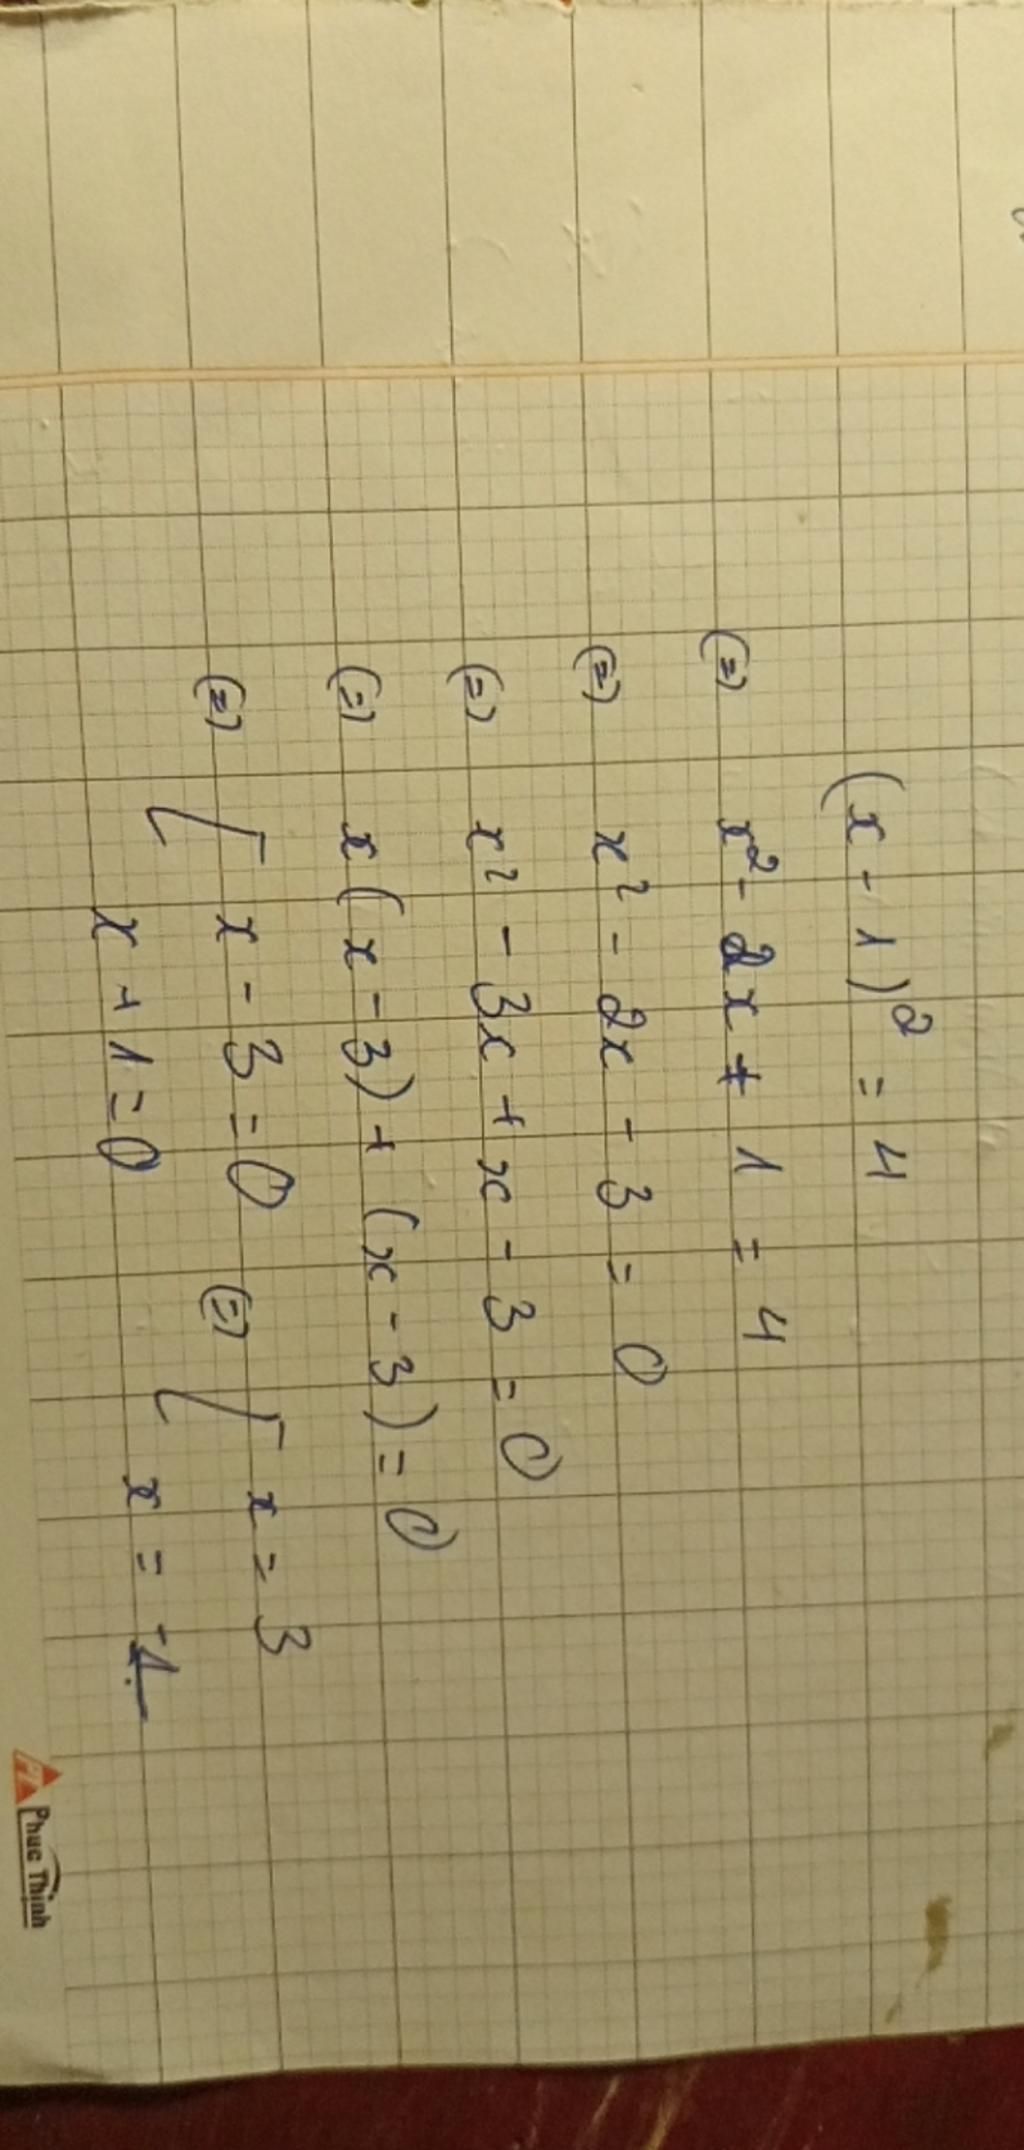 (x - 1)² = 4
(=) x² - 2x + 1 = 4
(=) x² - 2x - 3 = 0
(=) x² - 3x + x - 3 = 0
(=) x(x - 3) + (x - 3) = 0
(=) [ x - 3 = 0 (=) [ x = 3
x + 1 = 0 x = -1
Phuc Thinh